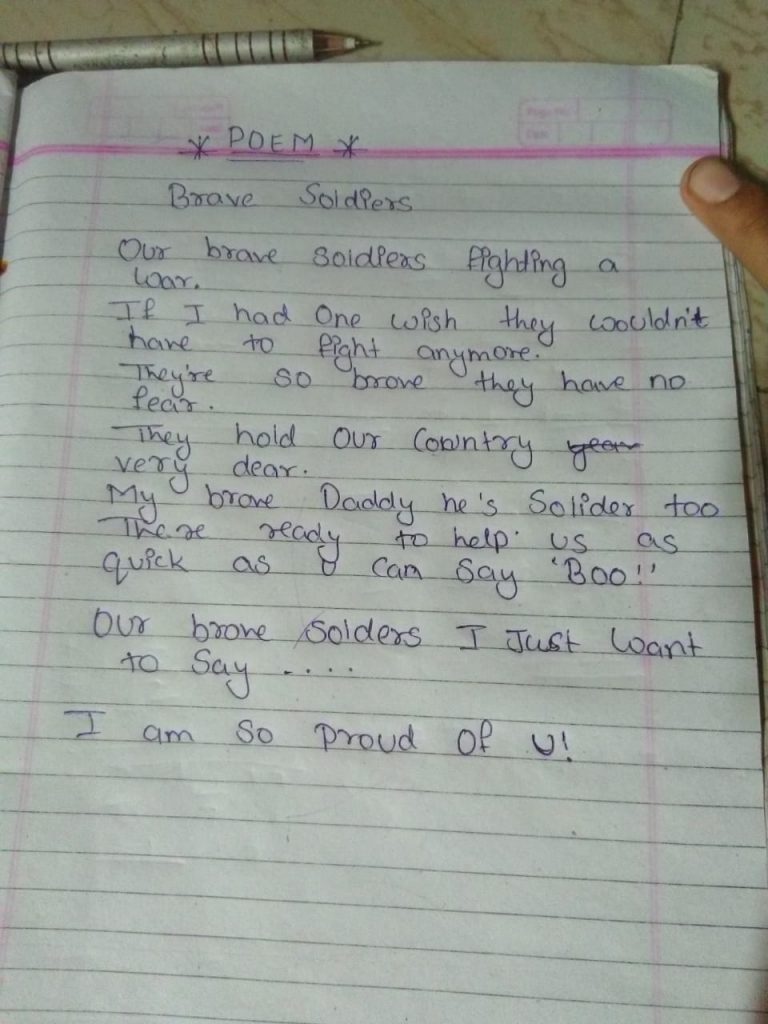 * POEM *
Brave Soldiers
Our brave soldiers fighting a
war.
If I had One wish they woouldn't
have to fight anymore.
They're so brave they have no
fear.
They hold our Country year
very dear.
My brave Daddy he's Solider too
There ready to help us as
quick as U Can Say 'Boo!'
Our brave Solders I Just want
to Say ....
I am So Proud Of U!